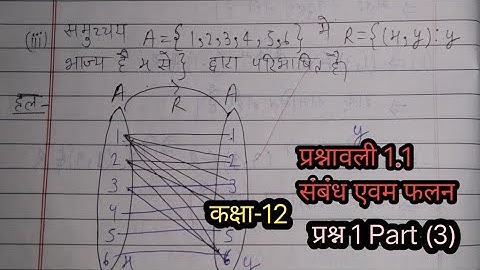 (iii) समुच्चय A={1,2,3,4,5,6} मे R={(x,y): y
भाज्य है x से} द्वारा परिभाषित है।
हल:-
A R A
1 1
2 2
3 3
4
5 5
6 6
x y
y
प्रश्नावली 1.1
संबंध एवम फलन
कक्षा-12
प्रश्न 1 Part (3)